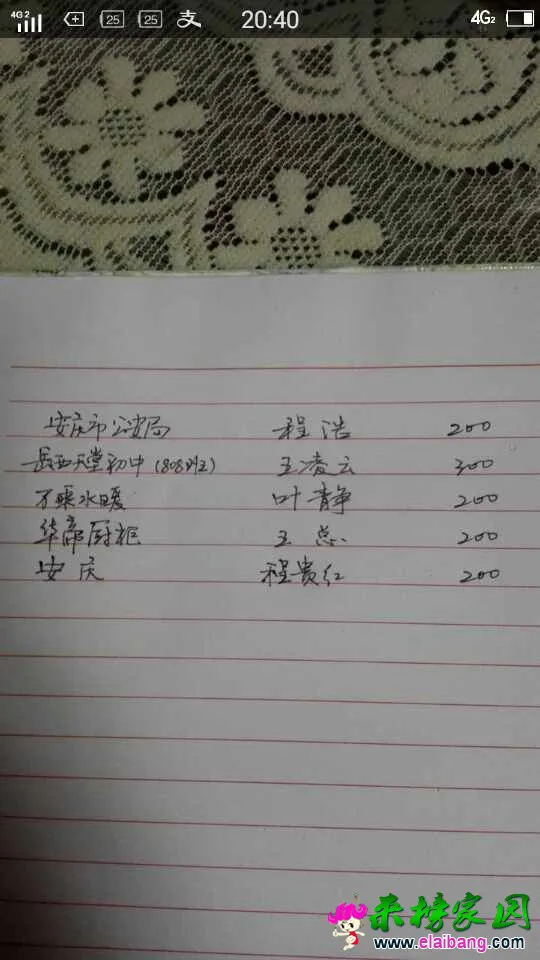 4G2 25 25 支 20:40 4G2
安庆市公安局 程浩 200
岳西天堂初中(808班) 王凌云 300
万家水暖 叶静 200
华帝厨柜 王总 200
安庆 程贵红 200
来榜家园
www.elaibang.com